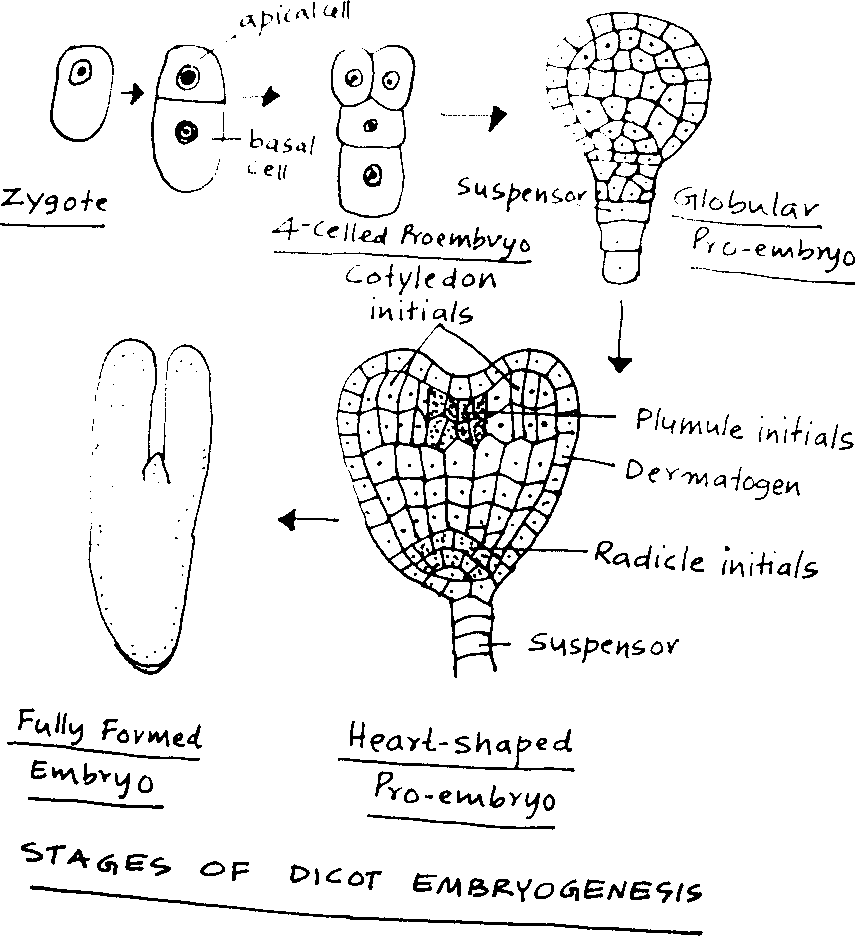 apical cell
basal
cell
Zygote
4-celled Proembryo
suspensor
Globular
Pro-embryo
Cotyledon
initials
Plumule initials
Dermatogen
Radicle initials
suspensor
Fully Formed
Embryo
Heart-shaped
Pro-embryo
STAGES OF DICOT EMBRYOGENESIS